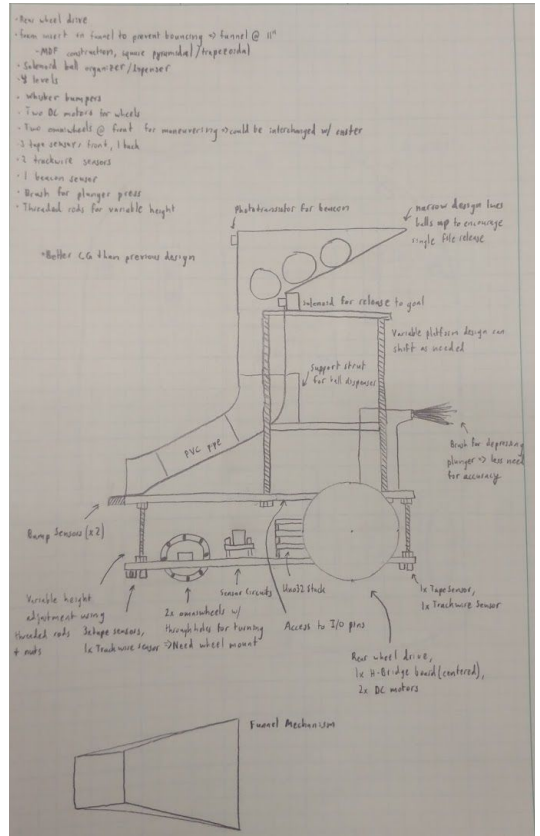 • Rear wheel drive
• Foam insert on funnel to prevent bouncing => funnel @ 11"
- MDF construction, square pyramidal/trapezoidal
• Solenoid ball organizer/dispenser
• 4 levels
• Whisker bumpers
• Two DC motors for wheels
• Two omniwheels @ front for maneuvering => could be interchanged w/ caster
• 3 tape sensors front, 1 back
• 2 trackwire sensors
• 1 beacon sensor
• Brush for plunger press
• Threaded rods for variable height
Phototransistor for beacon
narrow design lines
balls up to encourage
single file release
*Better CG than previous design
Solenoid for release to goal
Variable platform design can
shift as needed
Support strut
for ball dispenser
PVC pipe
Brush for depressing
plunger => less need
for accuracy
Bump Sensors (x2)
Sensor Circuits
Uno32 Stack
1x Tape Sensor,
1x Trackwire Sensor
Variable height
adjustment using
threaded rods
+ nuts
3x tape sensors,
1x Trackwire sensor
2x omniwheels w/
through holes for turning
=> Need wheel mount
Access to I/O pins
Rear wheel drive,
1x H-Bridge board (centered),
2x DC motors
Funnel Mechanism